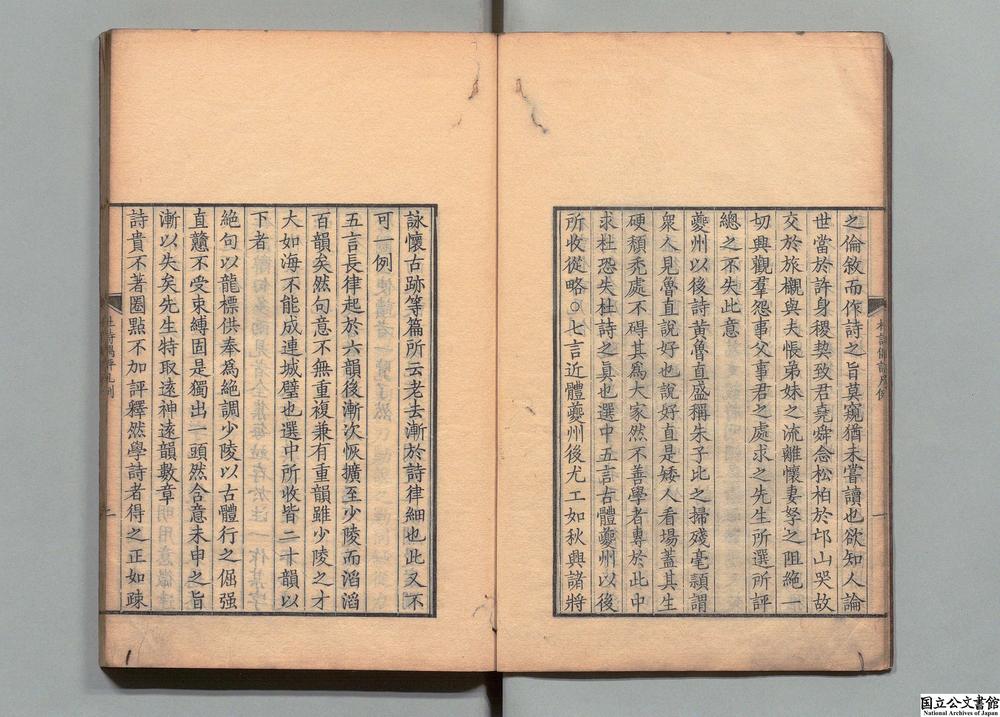 之倫敘而作詩之旨莫窺猶未嘗讀也欲知人論
世當於許身稷契致君堯舜念松柏於邙山哭故
交於旅櫬與夫悵弟妹之流離懷妻孥之阻絶一
切興觀羣怨事父事君之處求之先生所選所評
總之不失此意
夔州以後詩黃魯直盛稱朱子比之掃殘毫頴謂
衆人見魯直說好也說好直是矮人看場蓋其生
硬頹秃處不碍其爲大家然不善學者專於此中
求杜恐失杜詩之真也選中五言古體夔州以後
所收從略○七言近體夔州後尤工如秋興諸將
詠懷古跡等篇所云老去漸於詩律細也此又不
可一例
五言長律起於六韻後漸次恢擴至少陵而滔滔
百韻矣然句意不無重複兼有重韻雖少陵之才
大如海不能成連城璧也選中所收皆二十韻以
下者
絶句以龍標供奉爲絶調少陵以古體行之倔强
直戇不受束縛固是獨出一頭然含意未申之旨
漸以失矣先生特取遠神遠韻數章
詩貴不著圈點不加評釋然學詩者得之正如疎
杜詩偶評凡例
一
国立公文書館
National Archives of Japan